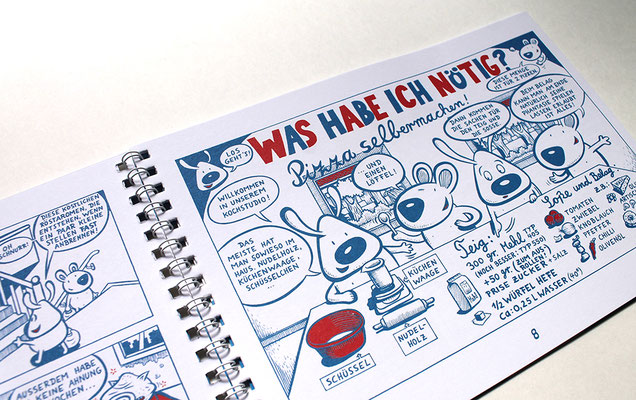 DIESE KÖSTLICHEN
RÖSTAROMEN, DIE
ENTSTEHEN, WENN
EIN PAAR KLEINE
STELLEN FAST
ANBRENNEN!
OH
SCHNURR!
AUSSERDEM HABE
KEINE AHNUNG
WAS HABE ICH NÖTIG?
Pizza selbermachen!
LOS
GEHT'S!
WILLKOMMEN
IN UNSEREM
KOCHSTUDIO!
DAS
MEISTE HAT
MAN SOWIESO IM
HAUS. NUDELHOLZ,
KÜCHENWAAGE,
SCHÜSSELCHEN
...UND
EINEN
LÖFFEL!
DANN KOMMEN
DIE SACHEN FÜR
DEN TEIG UND
DIE SOSSE.
DIESE MENGE
IST FÜR 2 PIZZEN.
BEIM BELAG
KANN MAN AM ENDE
NATÜRLICH SEINE
PHANTASIE SPIELEN
LASSEN. ERLAUBT
IST ALLES!
SCHÜSSEL
NUDEL-
HOLZ
KÜCHEN
WAAGE
Teig:
300 gr. Mehl TYP
(NOCH BESSER: TYP 550)
+50 gr. (ZUM
ROLLEN)
PRISE ZUCKER + SALZ
1/2 WÜRFEL HEFE
Ca. 0,25 L WASSER (40°)
Soße und Belag
z.B.:
TOMATEN
ZWIEBEL
KNOBLAUCH
PFEFFER
CHILI
OLIVENÖL
8